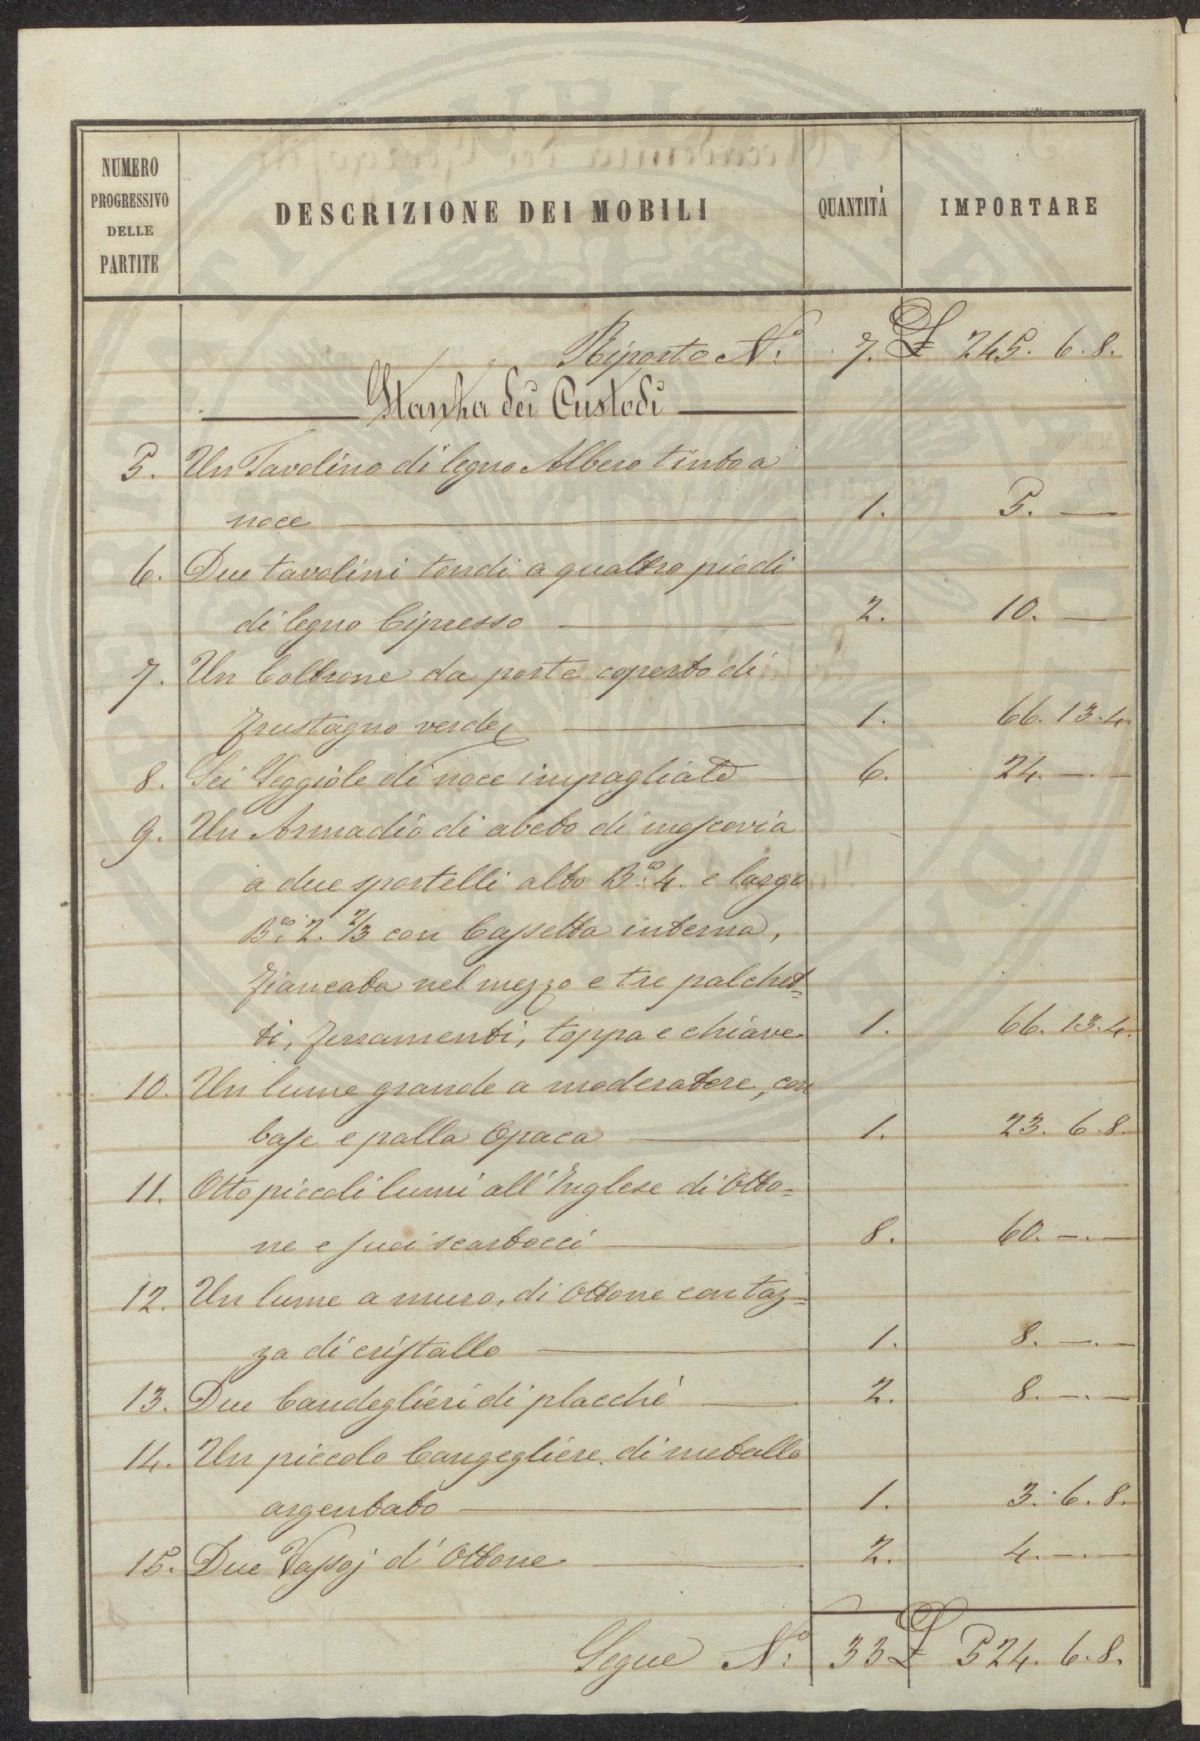 NUMERO
PROGRESSIVO
DELLE
PARTITE
DESCRIZIONE DEI MOBILI
QUANTITÁ
IMPORTARE
Riporto N.o 7. £ 245. 6. 8.
Stanza dei Custodi
5. Un Tavolino di legno Albero tinto a
noce 1. 5. —
6. Due tavolini tondi a quattro piedi
di legno Cipresso 2. 10. —
7. Un Coltrone da porta coperto di
frustagno verde 1. 66. 13. 4.
8. Sei Seggiole di noce impagliate 6. 24. —. —
9. Un Armadio di abeto di moscovia
a due sportelli alto B.a 4. e largo
B.a 2. 2/3 con Cassetta interna,
fiancata nel mezzo e tre palchet=
ti, ferramenti, toppa e chiave 1. 66. 13. 4.
10. Un lume grande a moderatore, con
base e palla Opaca 1. 23. 6. 8.
11. Otto piccoli lumi all'Inglese di Otto=
ne e suoi scartocci 8. 60. —. —
12. Un lume a muro, di Ottone con taz=
za di cristallo 1. 8. —. —
13. Due Candeglieri di placchè 2. 8. —. —
14. Un piccolo Cangegliere di metallo
argentato 1. 3. 6. 8.
15. Due Vassoj d'Ottone 2. 4. —. —
Segue N.o 33 £ 524. 6. 8.